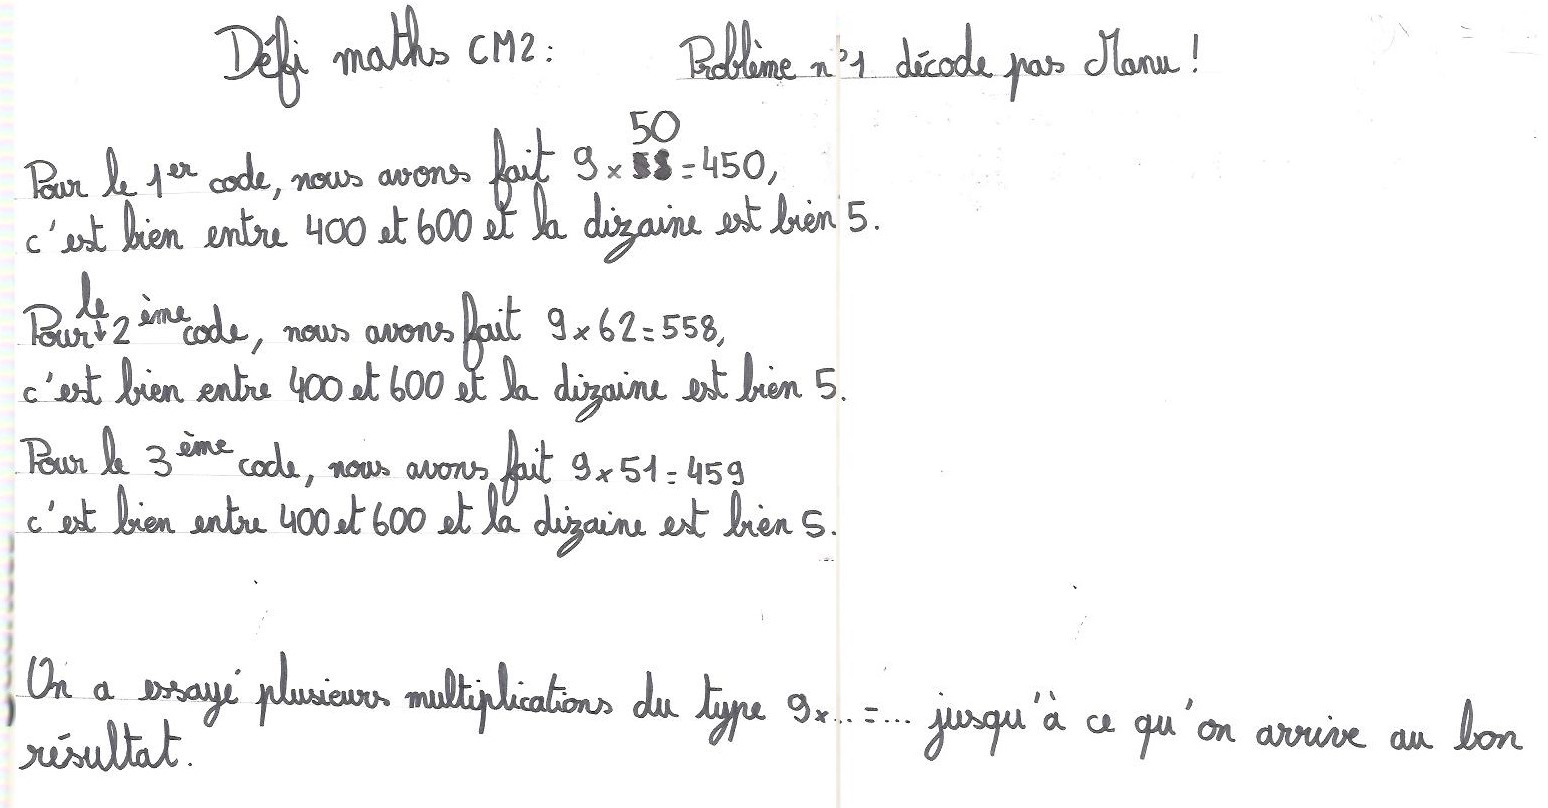 Défi maths CM2: Problème n°1 décode pas Manu !
Pour le 1er code, nous avons fait 9 x 50 = 450,
c'est bien entre 400 et 600 et la dizaine est bien 5.
Pour le 2ème code, nous avons fait 9 x 62 = 558,
c'est bien entre 400 et 600 et la dizaine est bien 5.
Pour le 3ème code, nous avons fait 9 x 51 = 459
c'est bien entre 400 et 600 et la dizaine est bien 5.
On a essayé plusieurs multiplications du type 9x... =... jusqu'à ce qu'on arrive au bon
résultat.